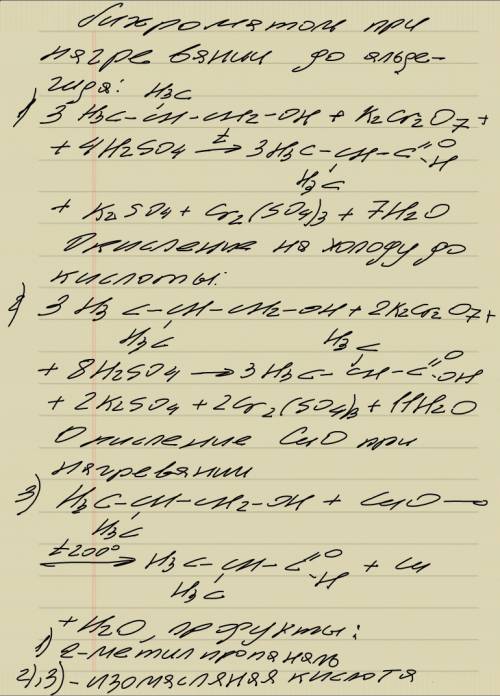 бихроматом при
нагревании до альде-
гида:
H3C
1) 3 H3C-CH-CH2-OH + K2Cr2O7 +
+ 4H2SO4 t→ 3H3C-CH-C=O-H
H3C
+ K2SO4 + Cr2(SO4)3 + 7H2O
Окисление на холоду до
кислоты:
2) 3 H3C-CH-CH2-OH + 2K2Cr2O7 +
H3C H3C
+ 8H2SO4 → 3H3C-CH-C=O-OH
+ 2K2SO4 + 2Cr2(SO4)3 + 11H2O
Окисление CuO при
нагревании
3) H3C-CH-CH2-OH + CuO —
H3C
t200° → H3C-CH-C=O-H + Cu
H3C
+ H2O, продукты:
1) 2-метилпропаналь
2),3) - изомасляная кислота